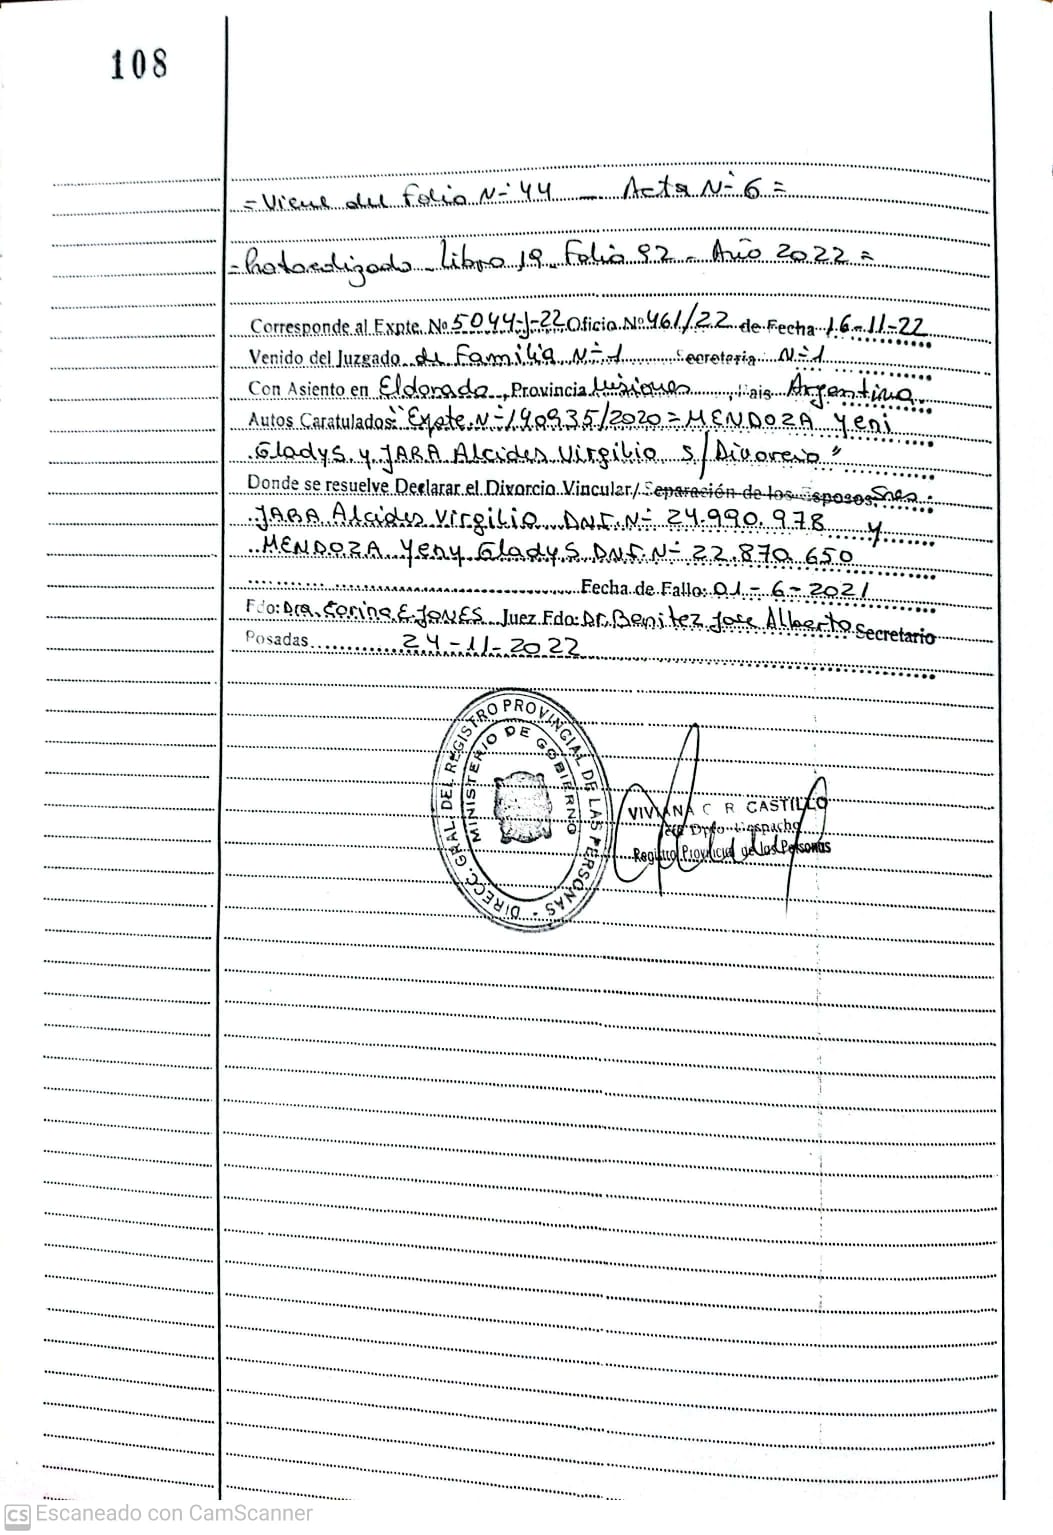 108
= Viene del Folio N° 44 — Acta N° 6 =
= Protocolizado Libro 19 Folio 92 - Año 2022 =
Corresponde al Expte. No 5044-J-22 Oficio Nº 461/22 de Fecha 16-11-22
Venido del Juzgado de Familia N° 1 Secretaria N° 1
Con Asiento en Eldorado, Provincia Misiones, Pais Argentina.
Autos Caratulados: "Expte. N° 140935/2020 = MENDOZA Yeni
Gladys y JARA Alcides Virgilio s/Divorcio"
Donde se resuelve Declarar el Divorcio Vincular/ Separación de los Esposos Sres.
JARA Alcides Virgilio DNI. N° 24.990.978 y
MENDOZA Yeny Gladys DNI. N° 22.870.650
Fecha de Fallo: 01-6-2021
Fdo: Dra. Corina E. JONES Juez Fdo: Dr. Benitez Jose Alberto Secretario
Posadas 24-11-2022
DIRECC. GRAL. DEL REGISTRO PROVINCIAL DE LAS PERSONAS
MINISTERIO DE GOBIERNO
VIVIANA C R CASTILLO
Dpto Despacho
Registro Provincial de las Personas
CS Escaneado con CamScanner